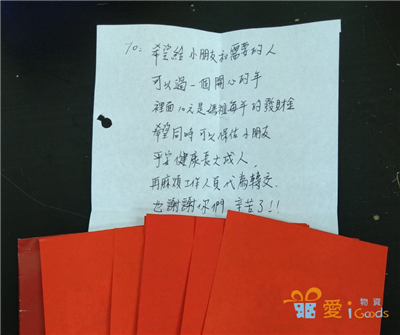 To: 希望給小朋友和需要的人
可以過一個開心的年
裡面10元是媽祖每年的發財金
希望同時可以保佑小朋友
平安健康長大成人.
再麻煩工作人員代為轉交.
也謝謝你們 辛苦了!!
愛物資
iGoods